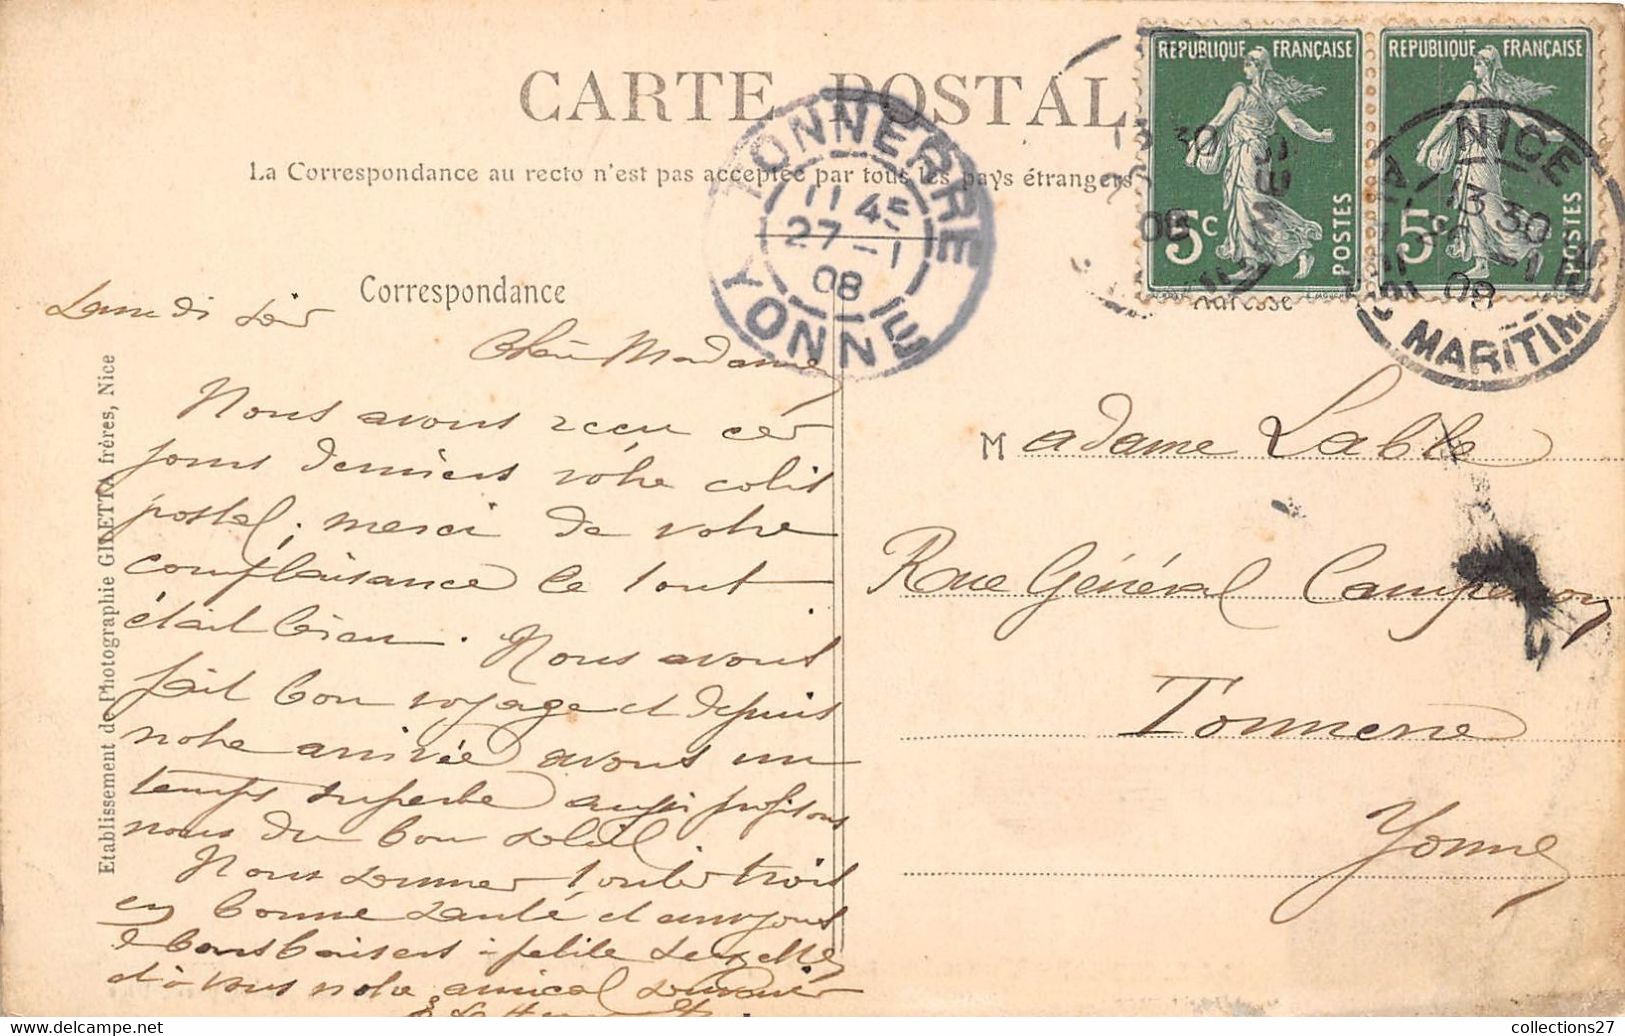 CARTE POSTALE
La Correspondance au recto n'est pas acceptée par tous les pays étrangers
RÉPUBLIQUE FRANÇAISE
5c POSTES
RÉPUBLIQUE FRANÇAISE
5c POSTES
TONNERRE
11 45
27 -1
08
YONNE
13 30
08
NICE
13 30
-1
08
MARITIMES
Correspondance
Adresse
Etablissement de Photographie GILETTA frères, Nice
Lundi soir
Chère Madame
Nous avons reçu ces
jours derniers votre colis
postal, merci de votre
complaisance le tout
était bien. Nous avons
fait bon voyage et depuis
notre arrivée avons un
temps superbe aussi profitons
nous du bon soleil
Nous sommes toutes trois
en bonne santé et envoyons
de bons baisers à petite
et à vous notre amical souvenir
Madame Lable
Rue Général Campenon
Tonnerre
Yonne
collections27